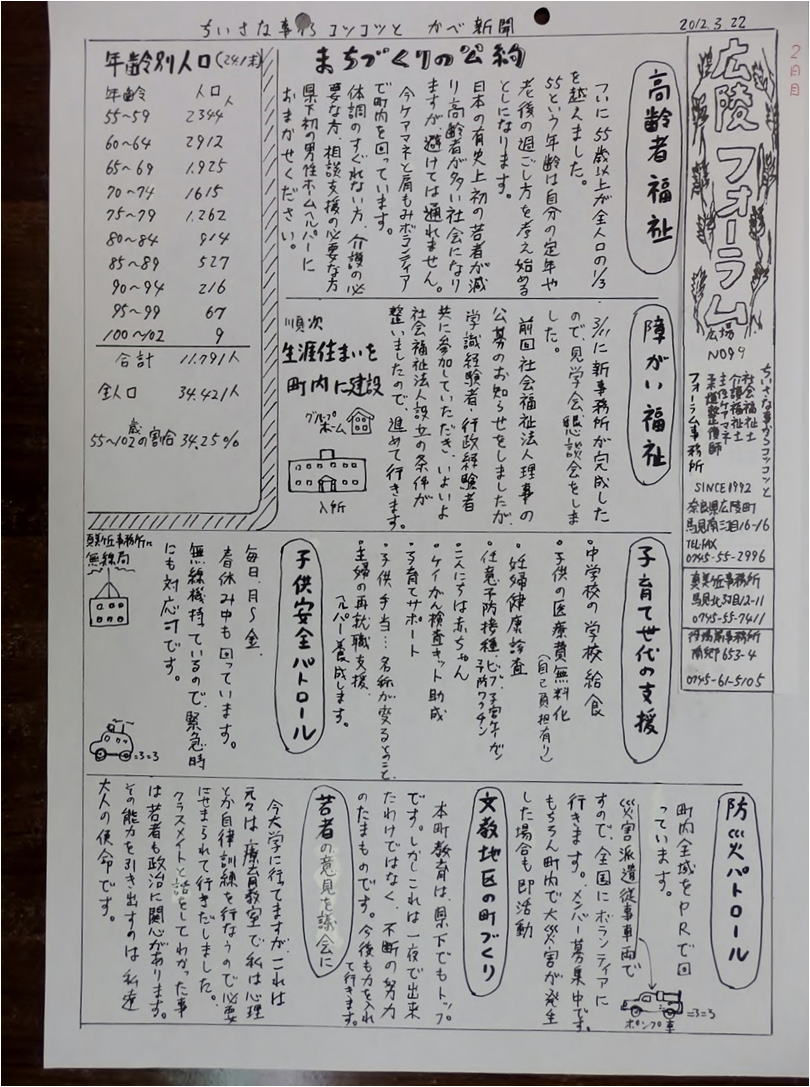 ちいさな事からコツコツと かべ新聞
2012.3.22
2日目
広陵フォーラム
広場
NO99
ちいさな事からコツコツと
社会福祉士
介護福祉士
主任ケアマネ
柔道整復師
フォーラム事務所
SINCE1992
奈良県広陵町
馬見南三丁目16-16
TEL・FAX
0745-55-2996
真美ヶ丘事務所
馬見北3丁目12-11
0745-55-7411
役場前事務所
南郷653-4
0745-61-5105
まちづくりの公約
高齢者福祉
ついに55歳以上が全人口の1/3
を越えました。
55という年齢は自分の定年や
老後の過ごし方を考え始める
としになります。
日本の有史上初の若者が減
り高齢者が多い社会になり
ますが避けては通れません。
今ケアマネと肩もみボランティア
で町内を回っています。
体調のすぐれない方、介護の必
要な方、相談支援の必要な方
県下初の男性ホームヘルパーに
おまかせください。
年齢別人口(24.1末)
年齢 人口
人
55~59 2344
60~64 2912
65~69 1,925
70~74 1615
75~79 1,262
80~84 914
85~89 527
90~94 216
95~99 67
100~102 9
合計 11,791人
全人口 34,421人
歳
55~102の割合 34.25%
障がい福祉
3/11に新事務所が完成した
ので、見学会、懇談会をしま
した。
前回社会福祉法人理事の
公募のお知らせをしましたが、
学識経験者・行政経験者
共に参加していただき、いよいよ
社会福祉法人設立の条件が
整いましたので進めて行きます。
順次
生涯住まいを
町内に建設
グループ
ホーム
入所
子育て世代の支援
・中学校の学校給食
・子供の医療費無料化
(自己負担有り)
・妊婦健康診査
・任意予防接種、ヒブ、子宮ケイガン
予防ワクチン
・こんにちは赤ちゃん
・ケイがん検査キット助成
・子育てサポート
・子供手当…名称が変るとのこと
・主婦の再就職支援、
ヘルパー養成します。
子供安全パトロール
毎日、月~金、
春休み中も回っています。
無線機持ているので、緊急時
にも対応可です。
真美ヶ丘事務所に
無線局
防災パトロール
町内全域をPRで回
っています。
災害派遣従事車両で
すので、全国にボランティアに
行きます。メンバー募集中です。
もちろん町内で大災害が発生
した場合も即活動
ポンプ車
文教地区の町づくり
本町教育は、県下でもトップ
です。しかしこれは一夜で出来
たわけではなく、不断の努力
のたまものです。今後も力を入れ
て行きます。
若者の意見を議会に
今大学に行ってますが、これは
元々は療育教室で私は心理
とか自律訓練を行なうので必要
にせまられて行きだしました。
クラスメイトと話をしてわかった事
は若者も政治に関心があります。
その能力を引き出すのは私達
大人の使命です。